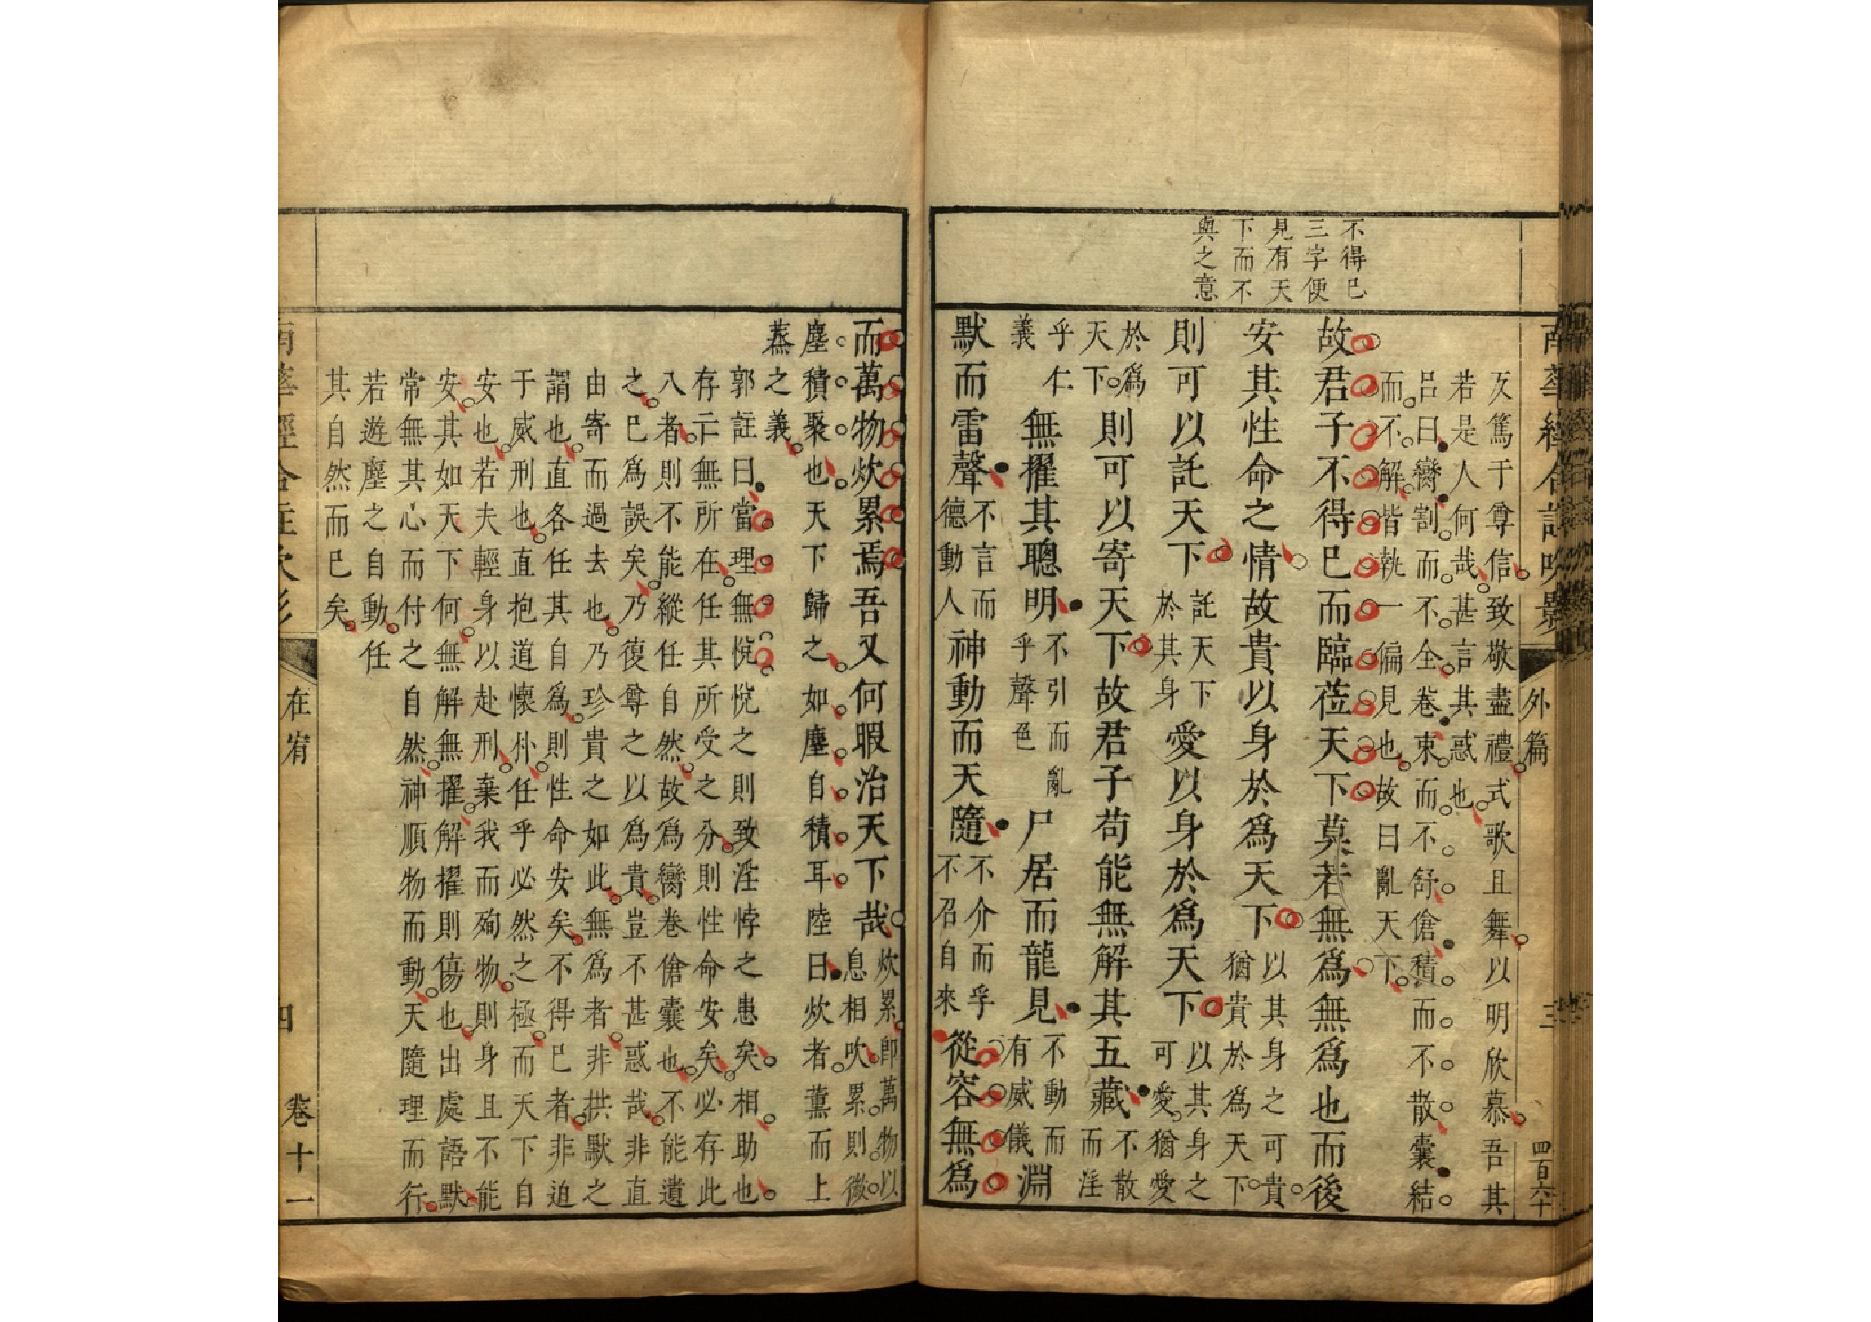 南華經合註吹影
外篇
三
四百六十
不得已
三字便
見有天
下而不
與之意
及篤于尊信致敬盡禮式歌且舞以明欣慕吾其
若是人何哉甚言其惑也
呂曰臠割而不全卷束而不舒傖積而不散囊結
而不解皆執一偏見也故曰亂天下
故君子不得已而臨莅天下莫若無爲無爲也而後
安其性命之情故貴以身於爲天下以其身之可貴猶貴於爲天下
則可以託天下託天下於其身愛以身於爲天下以其身之可愛猶愛
於爲天下則可以寄天下故君子苟能無解其五藏不散而淫
乎仁義無擢其聰明不引而亂乎聲色尸居而龍見不動而有威儀淵
默而雷聲不言而德動人神動而天隨不介而孚不召自來從容無爲
而萬物炊累焉吾又何暇治天下哉炊累卽萬物以息相吹累則微
塵積聚也天下歸之如塵自積耳陸曰炊者薰而上
蒸之義
郭註曰當理無悅悅之則致淫悖之患矣相助也
存亡無所在任其所受之分則性命安矣必存此
八者則不能縱任自然故爲臠卷傖囊也不能遺
之已爲誤矣乃復尊之以爲貴豈不甚惑哉非直
由寄而過去也乃珍貴之如此無爲者非拱默之
謂也直各任其自爲則性命安矣不得已者非迫
于威刑也直抱道懷朴任乎必然之極而天下自
安也若夫輕身以赴刑棄我而殉物則身且不能
安其如天下何無解無擢解擢則傷也出處語默
常無其心而付之自然神順物而動天隨理而行
若遊塵之自動任
其自然而已矣
南華經合註吹影
在宥
四
卷十一